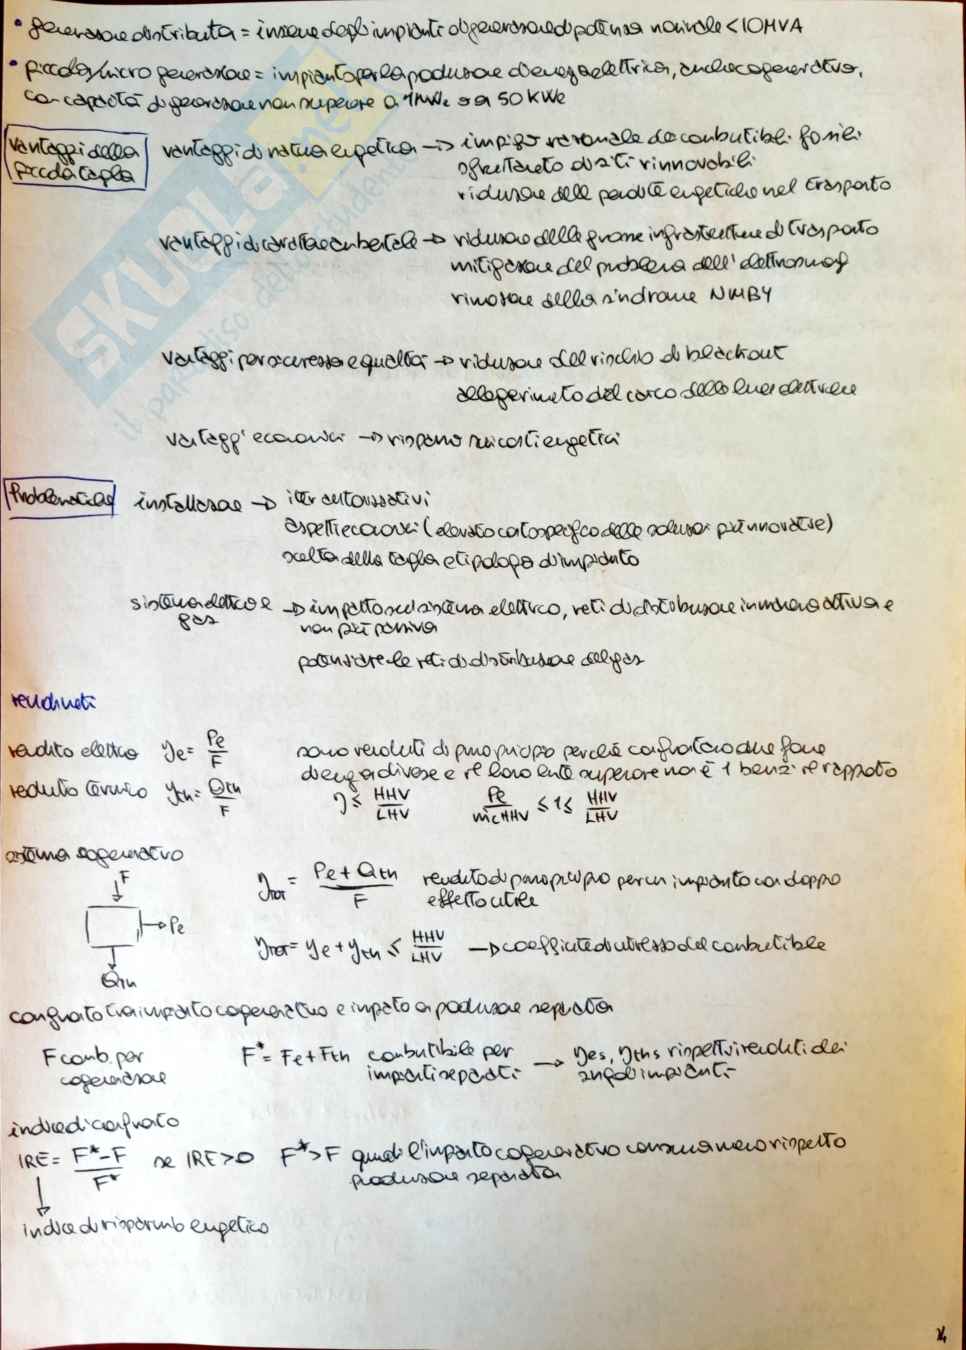 • generazione distribuita = insieme degli impianti di generazione di potenza nominale < 10MVA
• piccola/micro generazione = impianto per la produzione di energia elettrica, anche cogenerativa,
con capacità di generazione non superiore a 1MWe o a 50 KWe
vantaggi della
piccola taglia
vantaggi di natura energetica → impiego razionale dei combustibili fossili
sfruttamento di siti rinnovabili
riduzione delle perdite energetiche nel trasporto
vantaggi di carattere ambientale → riduzione delle grosse infrastrutture di trasporto
mitigazione del problema dell'elettrosmog
rimozione della sindrome NIMBY
vantaggi per sicurezza e qualità → riduzione del rischio di blackout
alleggerimento del carico delle linee elettriche
vantaggi economici → risparmio sui costi energetici
Problematiche
installazione → iter autorizzativi
aspetti economici (elevato costo specifico delle soluzioni più innovative)
scelta della taglia e tipologia di impianto
sistema elettrico e
gas
→ impatto sul sistema elettrico, reti di distribuzione in maniera attiva e
non più passiva
potenziare le reti di distribuzione del gas
rendimenti
rendimento elettrico ηe = Pe/F
sono rendimenti di primo principio perché confrontano due forme
di energia diverse e il loro limite superiore non è 1 bensì il rapporto
rendimento termico ηth = Qth/F
η ≤ HHV/LHV
Pe/ṁc HHV ≤ 1 ≤ HHV/LHV
sistema cogenerativo
F
Pe
Qth
ηTOT = Pe + Qth/F rendimento di primo principio per un impianto con doppio
effetto utile
ηTOT = ηe + ηth ≤ HHV/LHV → coefficiente di utilizzo del combustibile
confronto tra impianto cogenerativo e impianto a produzione separata
F comb. per
cogenerazione
F* = Fe + Fth combustibile per
impianti separati
→ ηes, ηths rispettivi rendimenti dei
singoli impianti
indice di confronto
IRE = F* - F/F* se IRE > 0 F* > F quindi l'impianto cogenerativo consuma meno rispetto
produzione separata
indice di risparmio energetico
SKUOLA.net
il paradiso dello studente